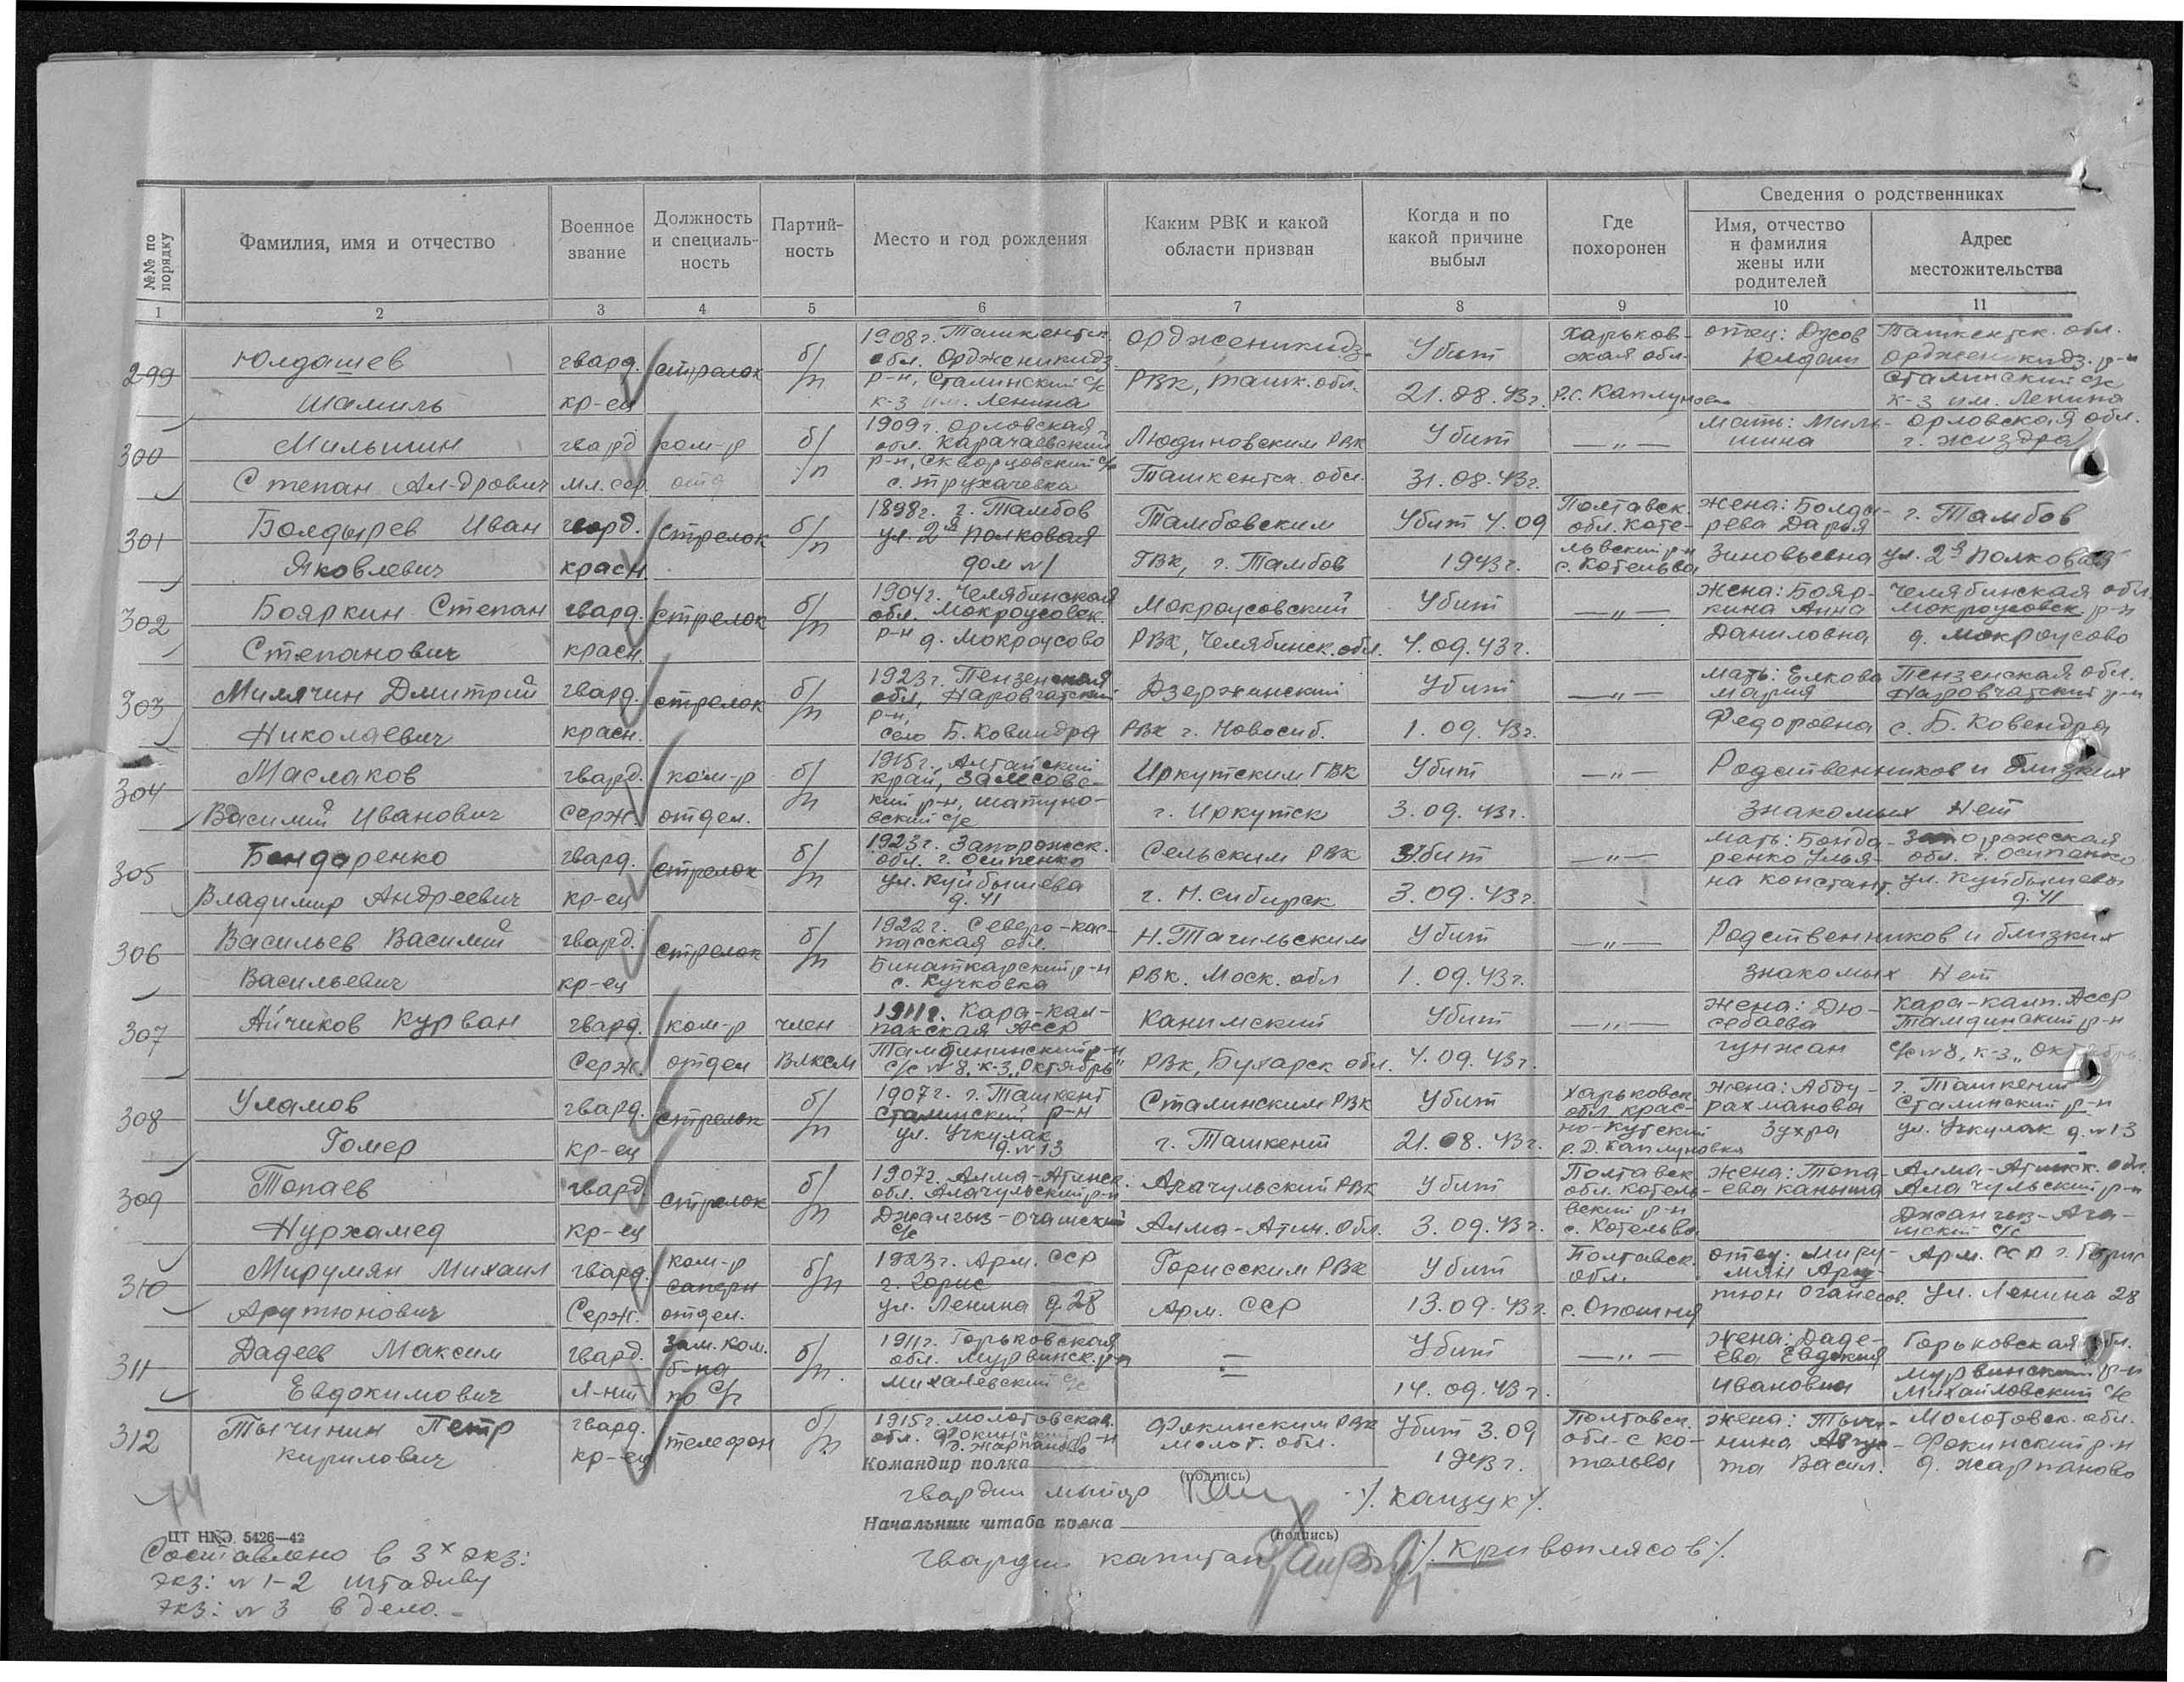 №№ по порядку
Фамилия, имя и отчество
Военное звание
Должность и специаль- ность
Партий- ность
Место и год рождения
Каким РВК и какой области призван
Когда и по какой причине выбыл
Где похоронен
Сведения о родственниках
Имя, отчество и фамилия жены или родителей
Адрес местожительства
1 2 3 4 5 6 7 8 9 10 11
299 Юлдашев Шамиль гвард. кр-ец стрелок б/п 1908г. Ташкентск. обл. Орджоникидз. р-н, Сталинский с/с к-з им. Ленина Орджоникидз. РВК, Ташк. обл. Убит 21.08.43г. Харьков- ская обл. с. Каплуновка отец: Юлдаш Ташкентск. обл. Орджоникидз. р-н Сталинский с/с к-з им. Ленина
300 Мильшин Степан Ал-дрович гвард мл. сер. ком-р отд б/п 1909г. Орловская обл. Карачаевский р-н, Скворцовский с/с с. Трухачевка Людиновским РВК Ташкентск. обл. Убит 31.08.43г. —„— мать: Миль- шина Орловская обл. г. Жиздра
301 Болдырев Иван Яковлевич гвард. красн. стрелок б/п 1898г. г. Тамбов ул. 2я Полковая дом №1 Тамбовским ГВК, г. Тамбов Убит 4.09 1943г. Полтавск. обл. Коте- львский р-н с. Котельва жена: Болды- рева Дарья Зиновьевна г. Тамбов ул. 2я Полковая
302 Бояркин Степан Степанович гвард. красн. стрелок б/п 1904г. Челябинская обл. Мокроусовск. р-н д. Мокроусово Мокроусовский РВК, Челябинск. обл. Убит 4.09.43г. —„— жена: Бояр- кина Анна Даниловна Челябинская обл. Мокроусовск. р-н д. Мокроусово
303 Милячин Дмитрий Николаевич гвард. красн. стрелок б/п 1923г. Пензенская обл, Наровчатский р-н, село Б. Ковиндра Дзержинский РВК г. Новосиб. Убит 1.09.43г. —„— мать: Елкова Мария Федоровна Пензенская обл. Наровчатский р-н с. Б. Ковендра
304 Маслаков Василий Иванович гвард. Серж. ком-р отдел. б/п 1915г. Алтайский край, Залесовс- кий р-н, Шатуно- вский с/с Иркутским ГВК г. Иркутск Убит 3.09.43г. —„— Родственников и близких знакомых нет
305 Бондаренко Владимир Андреевич гвард. кр-ец стрелок б/п 1923г. Запорожск. обл. г. Осипенко ул. Куйбышева д. 41 Сельским РВК г. Н. Сибирск Убит 3.09.43г. —„— мать: Бонда- ренко Улья- на Констант. Запорожская обл. г. Осипенко ул. Куйбышева д. 41
306 Васильев Василий Васильевич гвард. кр-ец стрелок б/п 1922г. Северо-кас- пасская обл. Бинаткарский р-н с. Кучковка Н. Тагильским РВК. Моск. обл Убит 1.09.43г. —„— Родственников и близких знакомых нет
307 Айчиков Курван гвард. Серж. ком-р отдел член ВЛКСМ 1911г. Кара-кал- пакская АССР Тамдининский р-н с/с №8, к-з „Октябрь" Канимский РВК, Бухарск обл. Убит 4.09.43г. —„— жена: Дю- себаева Гунжан Кара-калп. АССР Тамдинский р-н с/с №8, к-з „Октябрь
308 Уламов Гомер гвард. кр-ец стрелок б/п 1907г. г. Ташкент Сталинский р-н ул. Учкулак д. №13 Сталинским РВК г. Ташкент Убит 21.08.43г. Харьковск. обл. Крас- но-Кутский р. д. Каплуновка жена: Абду- рахманова Зухра г. Ташкент Сталинский р-н ул. Учкулак д. №13
309 Топаев Нурхамед гвард. кр-ец стрелок б/п 1907г. Алма-Атинск. обл. Алачульский р-н Джалгыз-Очашский с/с Алачульский РВК Алма-Атин. обл. Убит 3.09.43г. Полтавск. обл. Котель- вский р-н с. Котельва жена: Топа- ева Каныша Алма-Атинск. обл. Алачульский р-н Джангыз-Ага- шский с/с
310 Мирумян Михаил Арутюнович гвард. Серж. ком-р саперн отдел. б/п 1923г. Арм. ССР г. Горис ул. Ленина д. 28 Горисским РВК Арм. ССР Убит 13.09.43г. Полтавск. обл. с. Опошня отец: Миру- мян Ару- тюн Оганесов. Арм. ССР г. Горис ул. Ленина 28
311 Дадеев Максим Евдокимович гвард. Л-нт зам. ком. б-на по с/ч б/п. 1911г. Горьковская обл. Мурвинск. р-н Михалевский с/с — Убит 14.09.43г. —„— жена: Даде- ева Евдокия Ивановна Горьковская обл. Мурвинский р-н Михайловский с/с
312 Тычинин Петр Кирилович гвард. кр-ец телефон б/п. 1915г. Молотовская обл. Фокинский р-н д. Жарпаново Фокинским РВК Молот. обл. Убит 3.09 1943г. Полтавск. обл. с Ко- тельва жена: Тычи- нина Авгус- та Васил. Молотовск. обл. Фокинский р-н д. Жарпаново
Командир полка
(подпись)
гвардии майор /. Кащук /.
Начальник штаба полка
(подпись)
гвардии капитан /. Кривоплясов /.
74
ЦТ НКО 5426—42
Составлено в 3х экз:
экз: №1-2 штадиву
экз: №3 в дело.